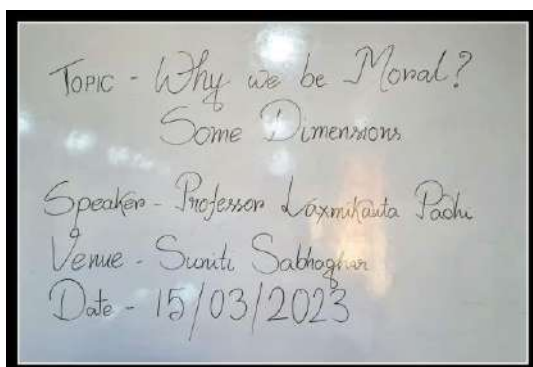 Topic - Why we be Moral?
Some Dimensions
Speaker - Professor Laxmikanta Padhi
Venue - Suniti Sabhaghar
Date - 15/03/2023